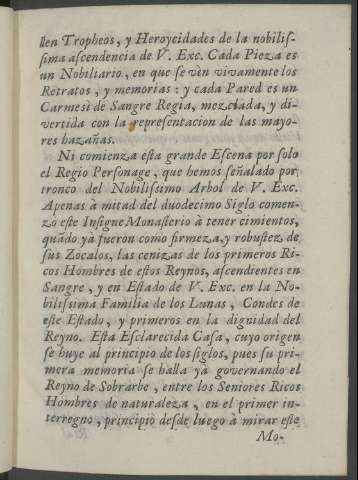 llen Tropheos, y Heroycidades de la nobilis-
sima ascendencia de V. Exc. Cada Pieza es
un Nobiliario, en que se vèn vivamente los
Retratos, y memorias: y cada Pared es un
Carmesì de Sangre Regia, mezclada, y di-
vertida con la representacion de las mayo-
res hazañas.
Ni comienza esta grande Escena por solo
el Regio Personage, que hemos señalado por
tronco del Nobilissimo Arbol de V. Exc.
Apenas à mitad del duodecimo Siglo comen-
zo este Insigne Monasterio à tener cimientos,
quãdo yà fueron como firmeza, y robustez de
sus Zocalos, las cenizas de los primeros Ri-
cos Hombres de estos Reynos, ascendientes en
Sangre, y en Estado de V. Exc. en la No-
bilissima Familia de los Lunas, Condes de
este Estado, y primeros en la dignidad del
Reyno. Esta Esclarecida Casa, cuyo origen
se huye al principio de los siglos, pues su pri-
mera memoria se halla ya governando el
Reyno de Sobrarbe, entre los Seniores Ricos
Hombres de naturaleza, en el primer in-
terregno, principio desde luego à mirar este
Mo-